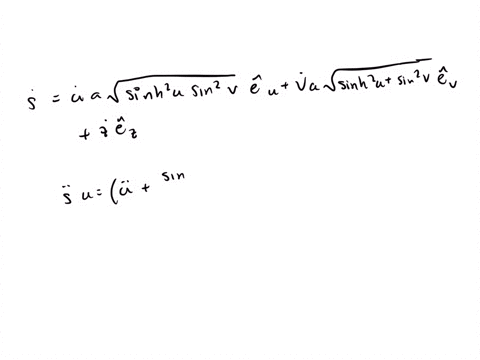 ṡ = u̇ a √(sinh²u sin²v) ê_u + v̇ a √(sinh²u + sin²v) ê_v
+ ż ê_z
s̈ u = (ü + sin